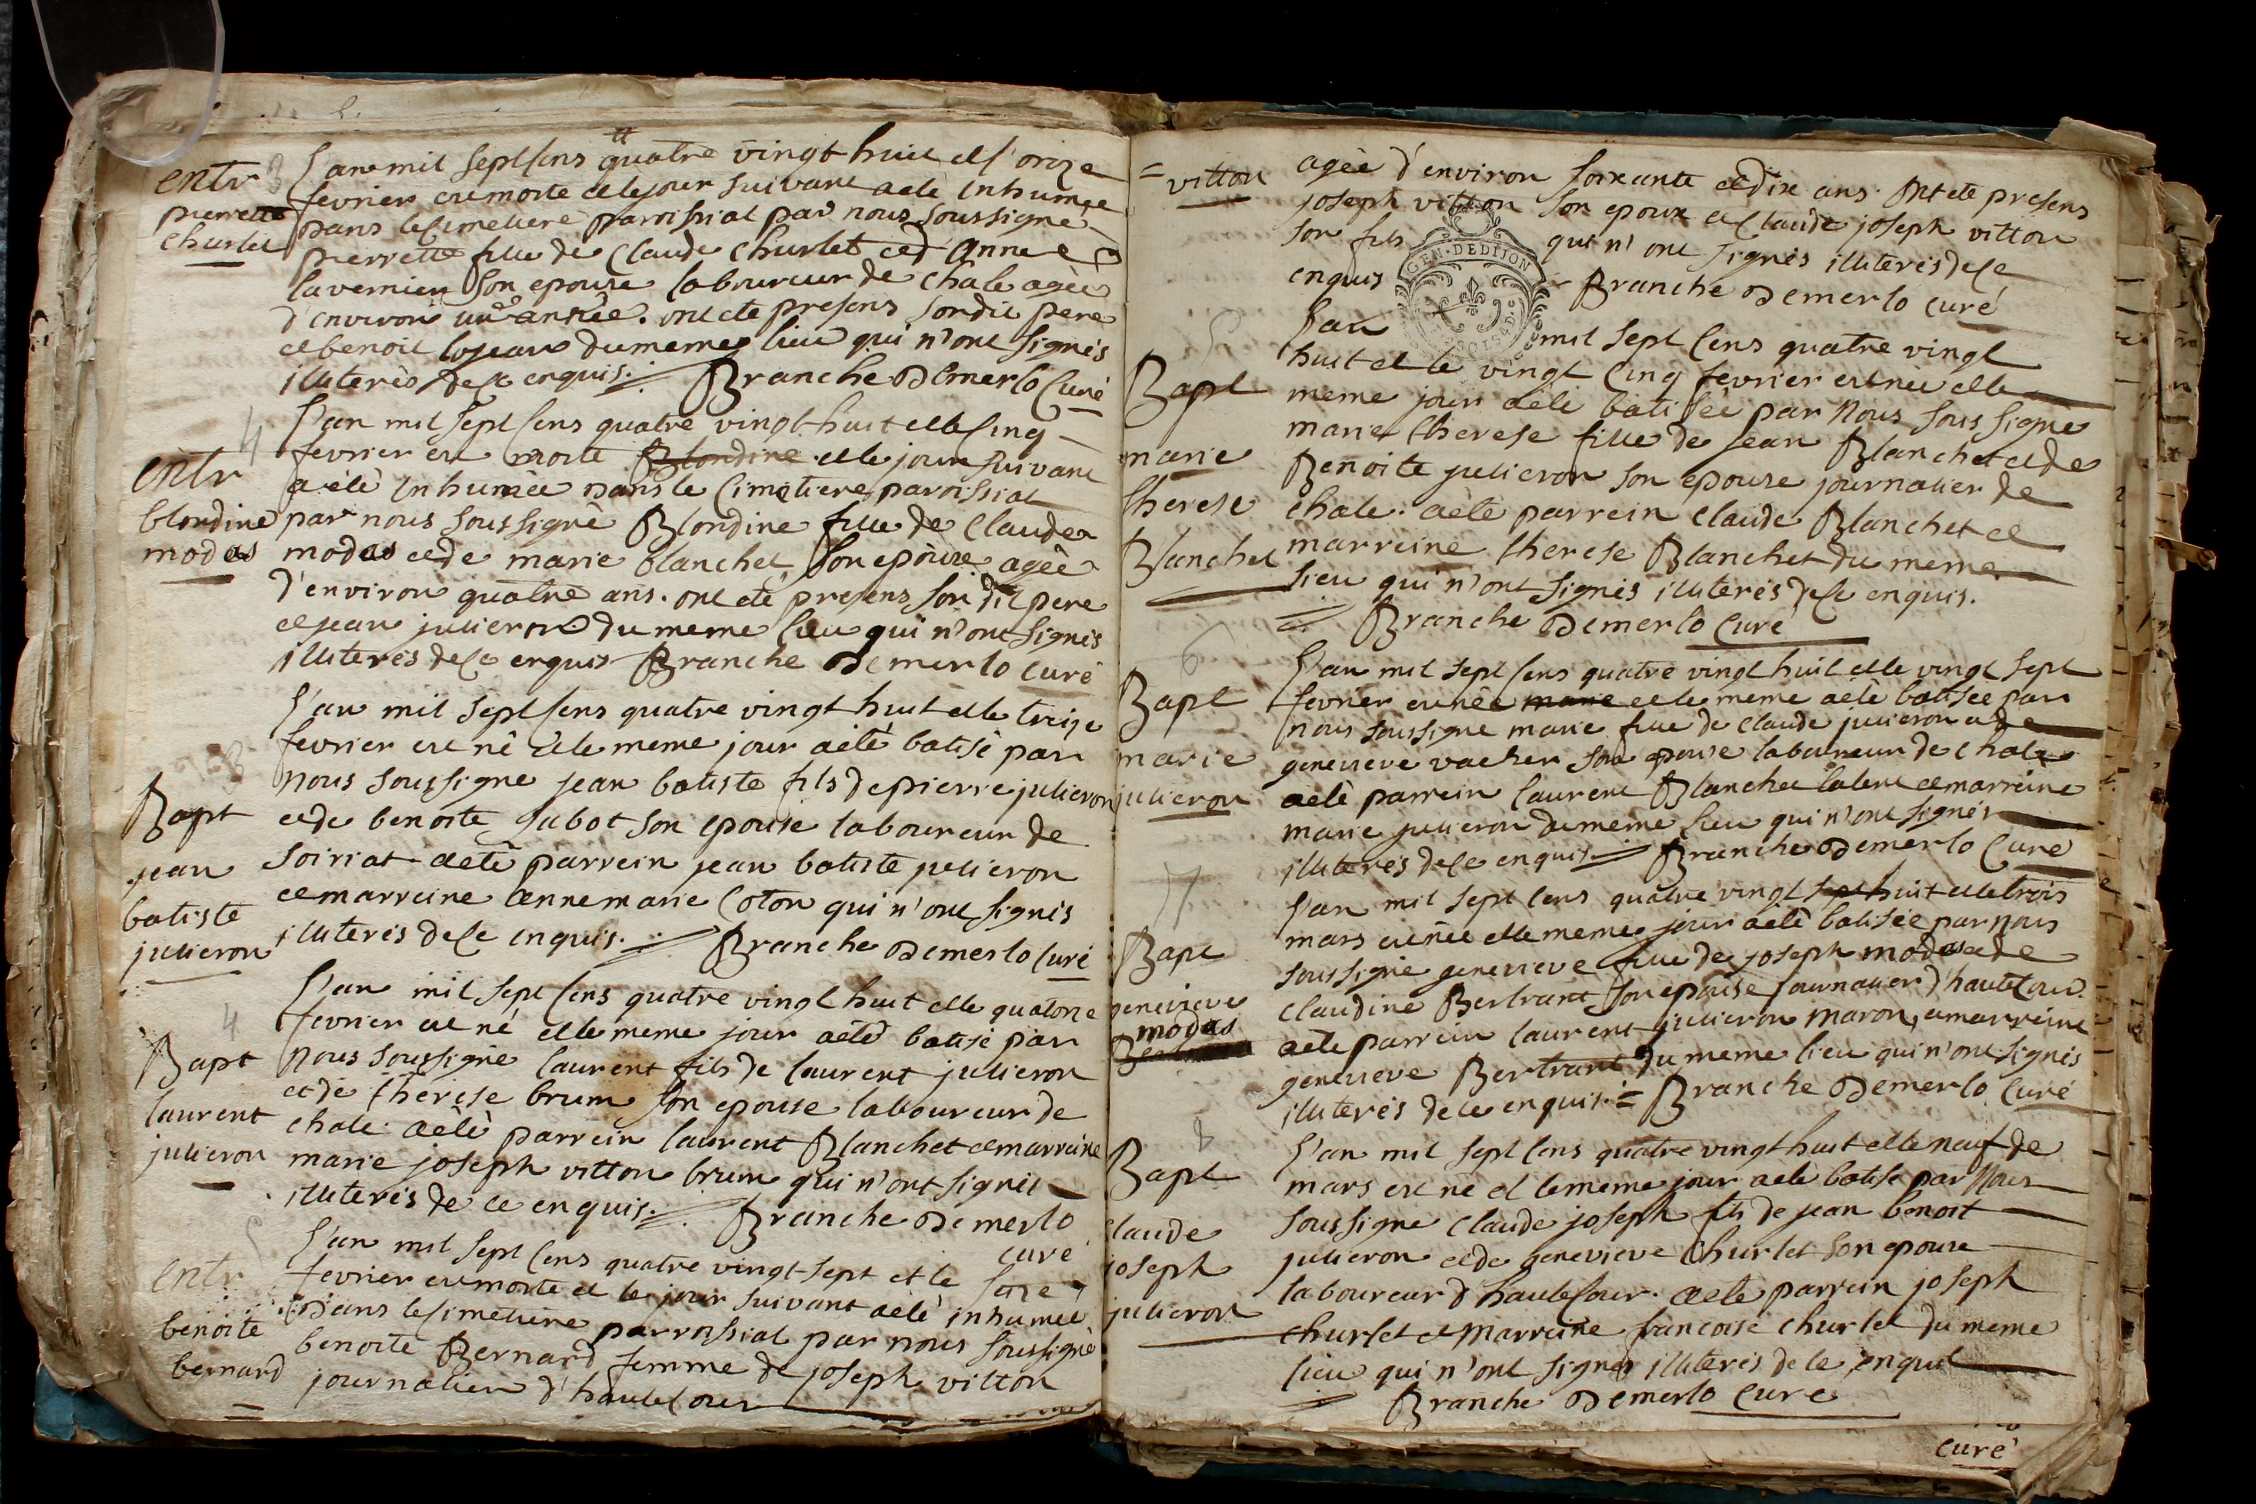 entr
pierrette
churlet
L'an mil sept cens quatre vingt huit et l'onze
fevrier est morte et le jour suivant a eté inhumée
dans le cimetiere paroissial par nous soussigné
pierrette fille de Claude churlet et d'anne
lavernier son epouse laboureur de chale agée
d'environ une année. ont ete presens son dit pere
et benoit lojean du meme lieu qui n'ont signés
illiterés de ce enquis. Branche Demerlo Curé
4
entr
blondine
modas
L'an mil sept cens quatre vingt huit et le cinq
fevrier est morte Blondine et le jour suivant
a eté inhumée dans le cimetiere paroissial
par nous soussigné Blondine fille de Claude
modas et de marie blanchet son epouse agée
d'environ quatre ans. ont eté presens son dit pere
et jean julieron du meme lieu qui n'ont signés
illiterés de ce enquis Branche Demerlo curé
Bapt
jean
batiste
julieron
L'an mil sept cens quatre vingt huit et le treize
fevrier est né et le meme jour a eté batisé par
nous soussigné jean batiste fils de pierre julieron
et de benoite jabot son epouse laboureur de
soiriat a eté parrein jean batiste julieron
et marreine anne marie Coton qui n'ont signés
illiterés de ce enquis. Branche Demerlo curé
4
Bapt
laurent
julieron
L'an mil sept cens quatre vingt huit et le quatorze
fevrier est né et le meme jour a eté batisé par
nous soussigné laurent fils de laurent julieron
et de therese brum son epouse laboureur de
chale. a eté parrein laurent Blanchet et marreine
marie joseph vitton brum qui n'ont signés
illiterés de ce enquis. Branche Demerlo
curé
entr
benoite
bernard
L'an mil sept cens quatre vingt sept et le seze
fevrier est morte et le jour suivant a eté inhumée
dans le cimetiere parroissial par nous soussigné
benoite Bernard femme de joseph vitton
journalier d'hautecour
= vitton
agée d'environ soixante et dix ans. Ont eté presens
joseph vitton son epoux et Claude joseph vitton
son fils qui n'ont signés illiterés de ce
enquis Branche Demerlo curé
GEN. DE DIJON
5
Bapt
marie
therese
Blanchet
L'an mil sept cens quatre vingt
huit et le vingt cinq fevrier est née et le
meme jour a eté batisée par nous soussigné
marie therese fille de jean Blanchet et de
Benoite julieron son epouse journalier de
chale. a eté parrein claude Blanchet et
marreine therese Blanchet du meme
lieu qui n'ont signés illiterés de ce enquis.
Branche Demerlo curé
6
Bapt
marie
julieron
L'an mil sept cens quatre vingt huit et le vingt sept
fevrier est née marie et le meme a eté batisée par
nous soussigné marie fille de claude julieron et de
genevieve vacher son epouse laboureur de chale
a eté parrein laurent Blanchet et marreine
marie julieron du meme lieu qui n'ont signés
illiterés de ce enquis. Branche Demerlo Curé
7
Bapt
genevieve
modas
L'an mil sept cens quatre vingt sept huit et le trois
mars est née et le meme jour a eté batisée par nous
soussigné genevieve fille de joseph modas et de
claudine Bertrant son epouse journalier d'hautecour.
a eté parrein laurent julieron maron, et marreine
genevieve Bertrant du meme lieu qui n'ont signés
illiterés de ce enquis. = Branche Demerlo Curé
8
Bapt
claude
joseph
julieron
L'an mil sept cens quatre vingt huit et le neuf de
mars est né et le meme jour a eté batisé par Nous
soussigné claude joseph fils de jean benoit
julieron et de genevieve Churlet son epouse
laboureur d'hautecour. a eté parrein joseph
churlet et Marreine francoise churlet du meme
lieu qui n'ont signés illiterés de ce enquis
Branche Demerlo Curé
curé